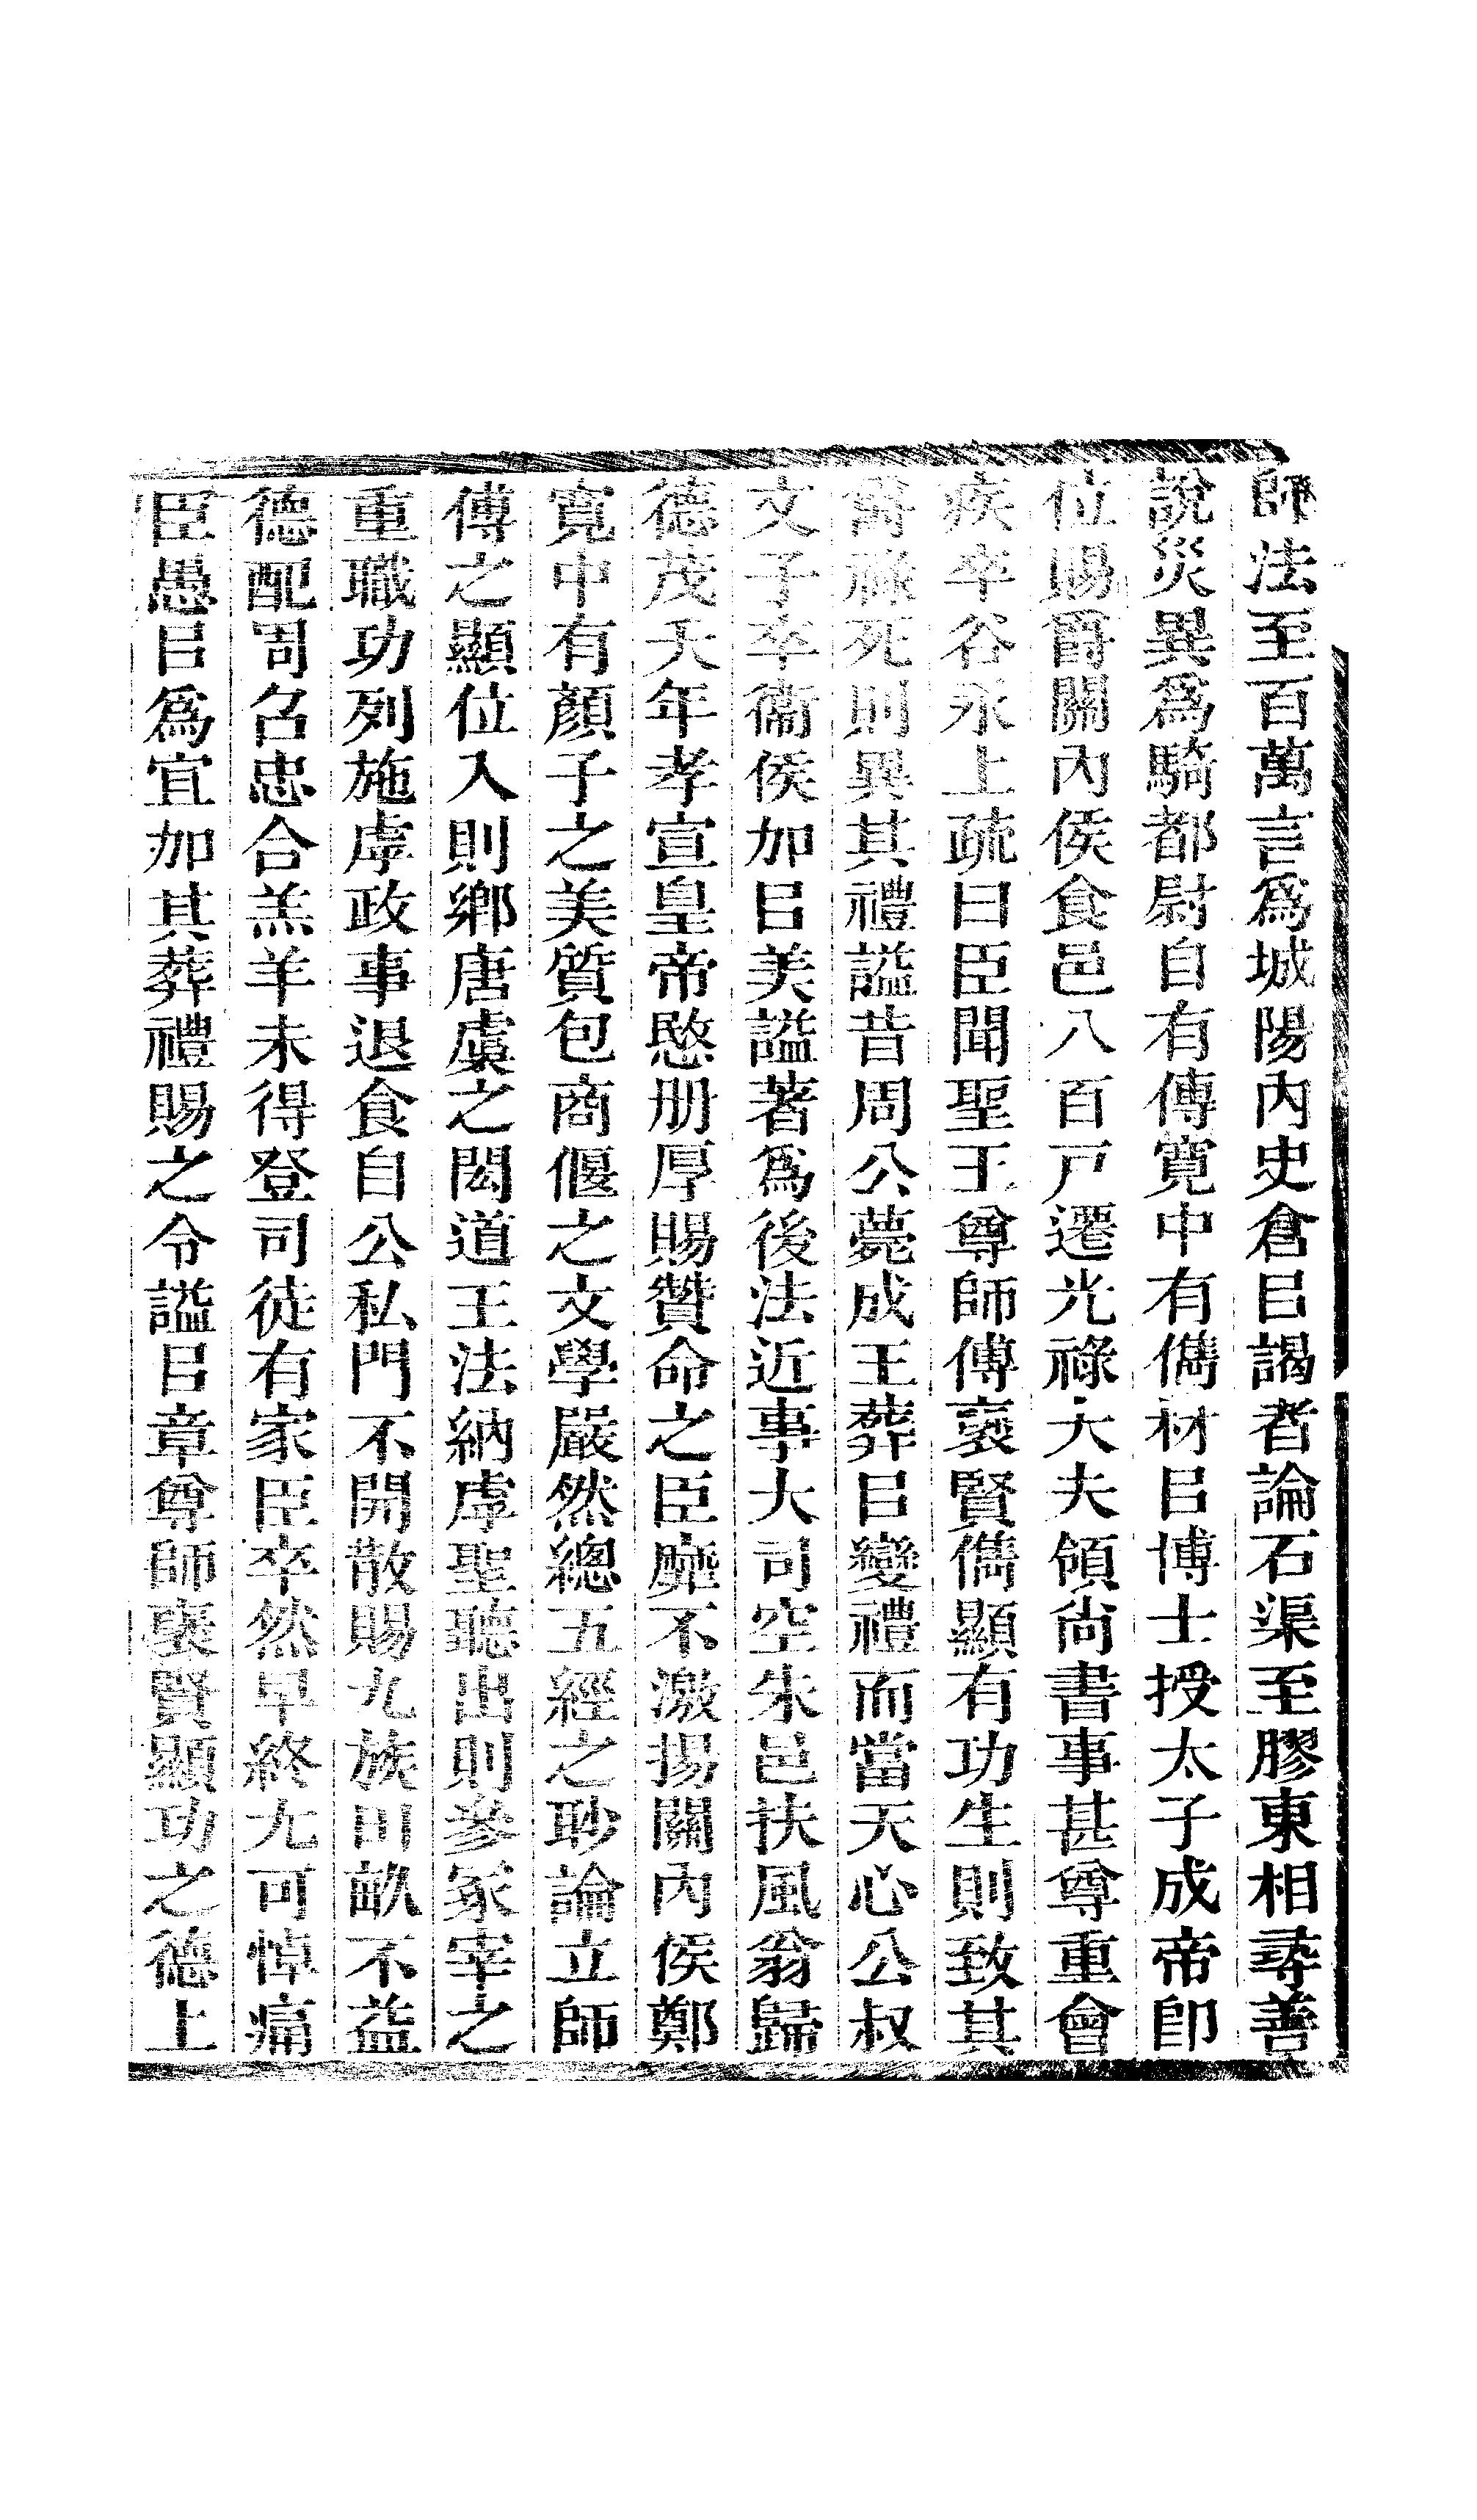 師法至百萬言爲城陽內史倉㠯謁者論石渠至膠東相尋善
說災異爲騎都尉自有傳寬中有儁材㠯博士授太子成帝卽
位賜爵關內侯食邑八百戸遷光祿大夫領尙書事甚尊重會
疾卒谷永上疏曰臣聞聖王尊師傅襃賢儁顯有功生則致其
爵祿死則異其禮謚昔周公薨成王葬㠯變禮而當天心公叔
文子卒衞侯加㠯美謚著爲後法近事大司空朱邑扶風翁歸
德茂夭年孝宣皇帝愍册厚賜贊命之臣靡不激揚關內侯鄭
寬中有顏子之美質包商偃之文學嚴然總五經之眇論立師
傅之顯位入則鄉唐虞之閎道王法納虖聖聽出則參冢宰之
重職功列施虖政事退食自公私門不開散賜九族田畝不益
德配周召忠合羔羊未得登司徒有家臣卒然早終尤可悼痛
臣愚㠯爲宜加其葬禮賜之令謚㠯章尊師襃賢顯功之德上